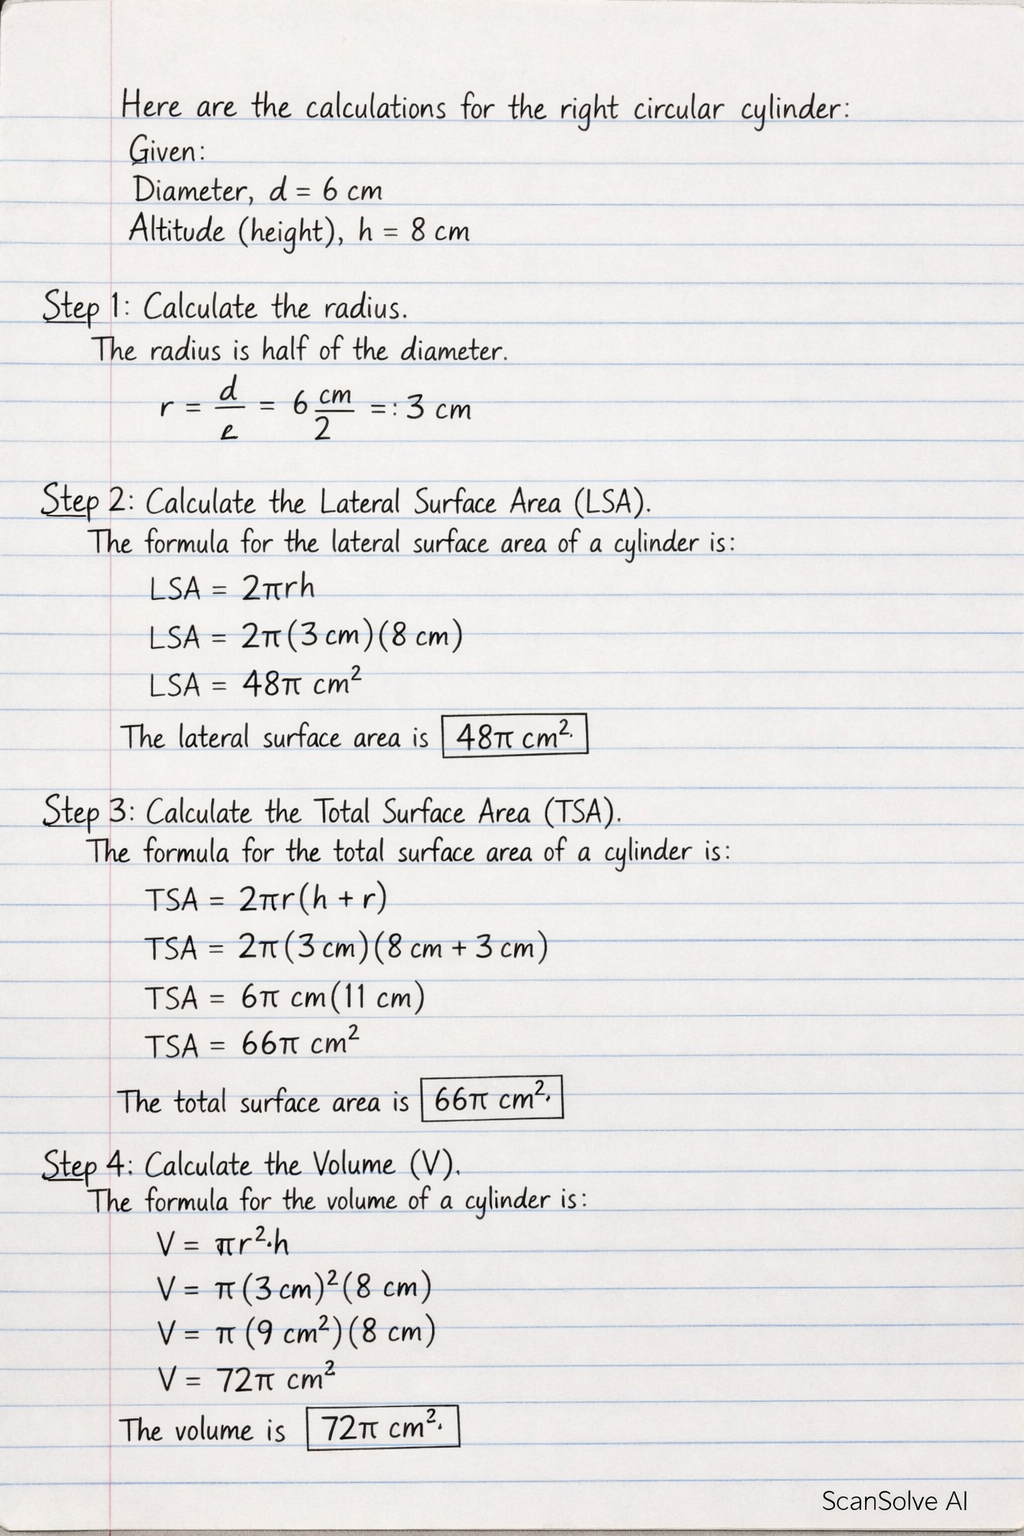 Here are the calculations for the right circular cylinder:
Given:
Diameter, d = 6 cm
Altitude (height), h = 8 cm
Step 1: Calculate the radius.
The radius is half of the diameter.
r = d/e = 6 cm/2 =: 3 cm
Step 2: Calculate the Lateral Surface Area (LSA).
The formula for the lateral surface area of a cylinder is:
LSA = 2πrh
LSA = 2π(3 cm)(8 cm)
LSA = 48π cm²
The lateral surface area is 48π cm².
Step 3: Calculate the Total Surface Area (TSA).
The formula for the total surface area of a cylinder is:
TSA = 2πr(h + r)
TSA = 2π(3 cm)(8 cm + 3 cm)
TSA = 6π cm(11 cm)
TSA = 66π cm²
The total surface area is 66π cm².
Step 4: Calculate the Volume (V).
The formula for the volume of a cylinder is:
V = πr²·h
V = π(3 cm)²(8 cm)
V = π(9 cm²)(8 cm)
V = 72π cm²
The volume is 72π cm².
ScanSolve AI